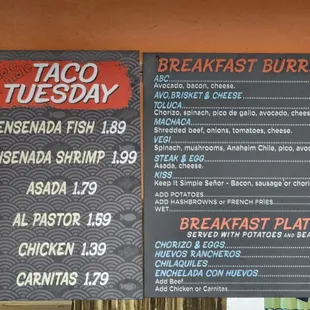 TACO
TUESDAY
ENSENADA FISH 1.89
ENSENADA SHRIMP 1.99
ASADA 1.79
AL PASTOR 1.59
CHICKEN 1.39
CARNITAS 1.79
BREAKFAST BURR
ABC
Avocado, bacon, cheese.
AVO, BRISKET & CHEESE
TOLUCA
Chorizo, spinach, pico de gallo, avocado, chees
MACHACA
Shredded beef, onions, tomatoes, cheese.
VEGI
Spinach, mushrooms, Anaheim Chile, pico, avoc
STEAK & EGG
Asada, cheese.
KISS
Keep It Simple Señor - Bacon, sausage or chori
ADD POTATOES
ADD HASHBROWNS or FRENCH FRIES
WET
BREAKFAST PLAT
SERVED WITH POTATOES AND BEA
CHORIZO & EGGS
HUEVOS RANCHEROS
CHILAQUILES
ENCHELADA CON HUEVOS
Add Beef
Add Chicken or Carnitas